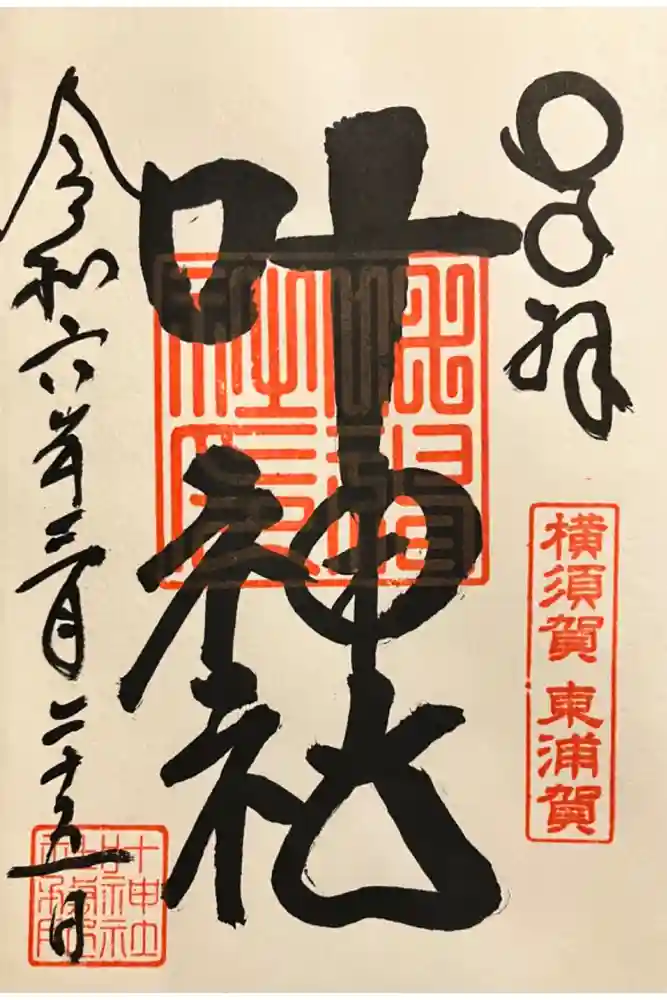 奉拝
横須賀 東浦賀
叶神社
令和六年三月二十五日